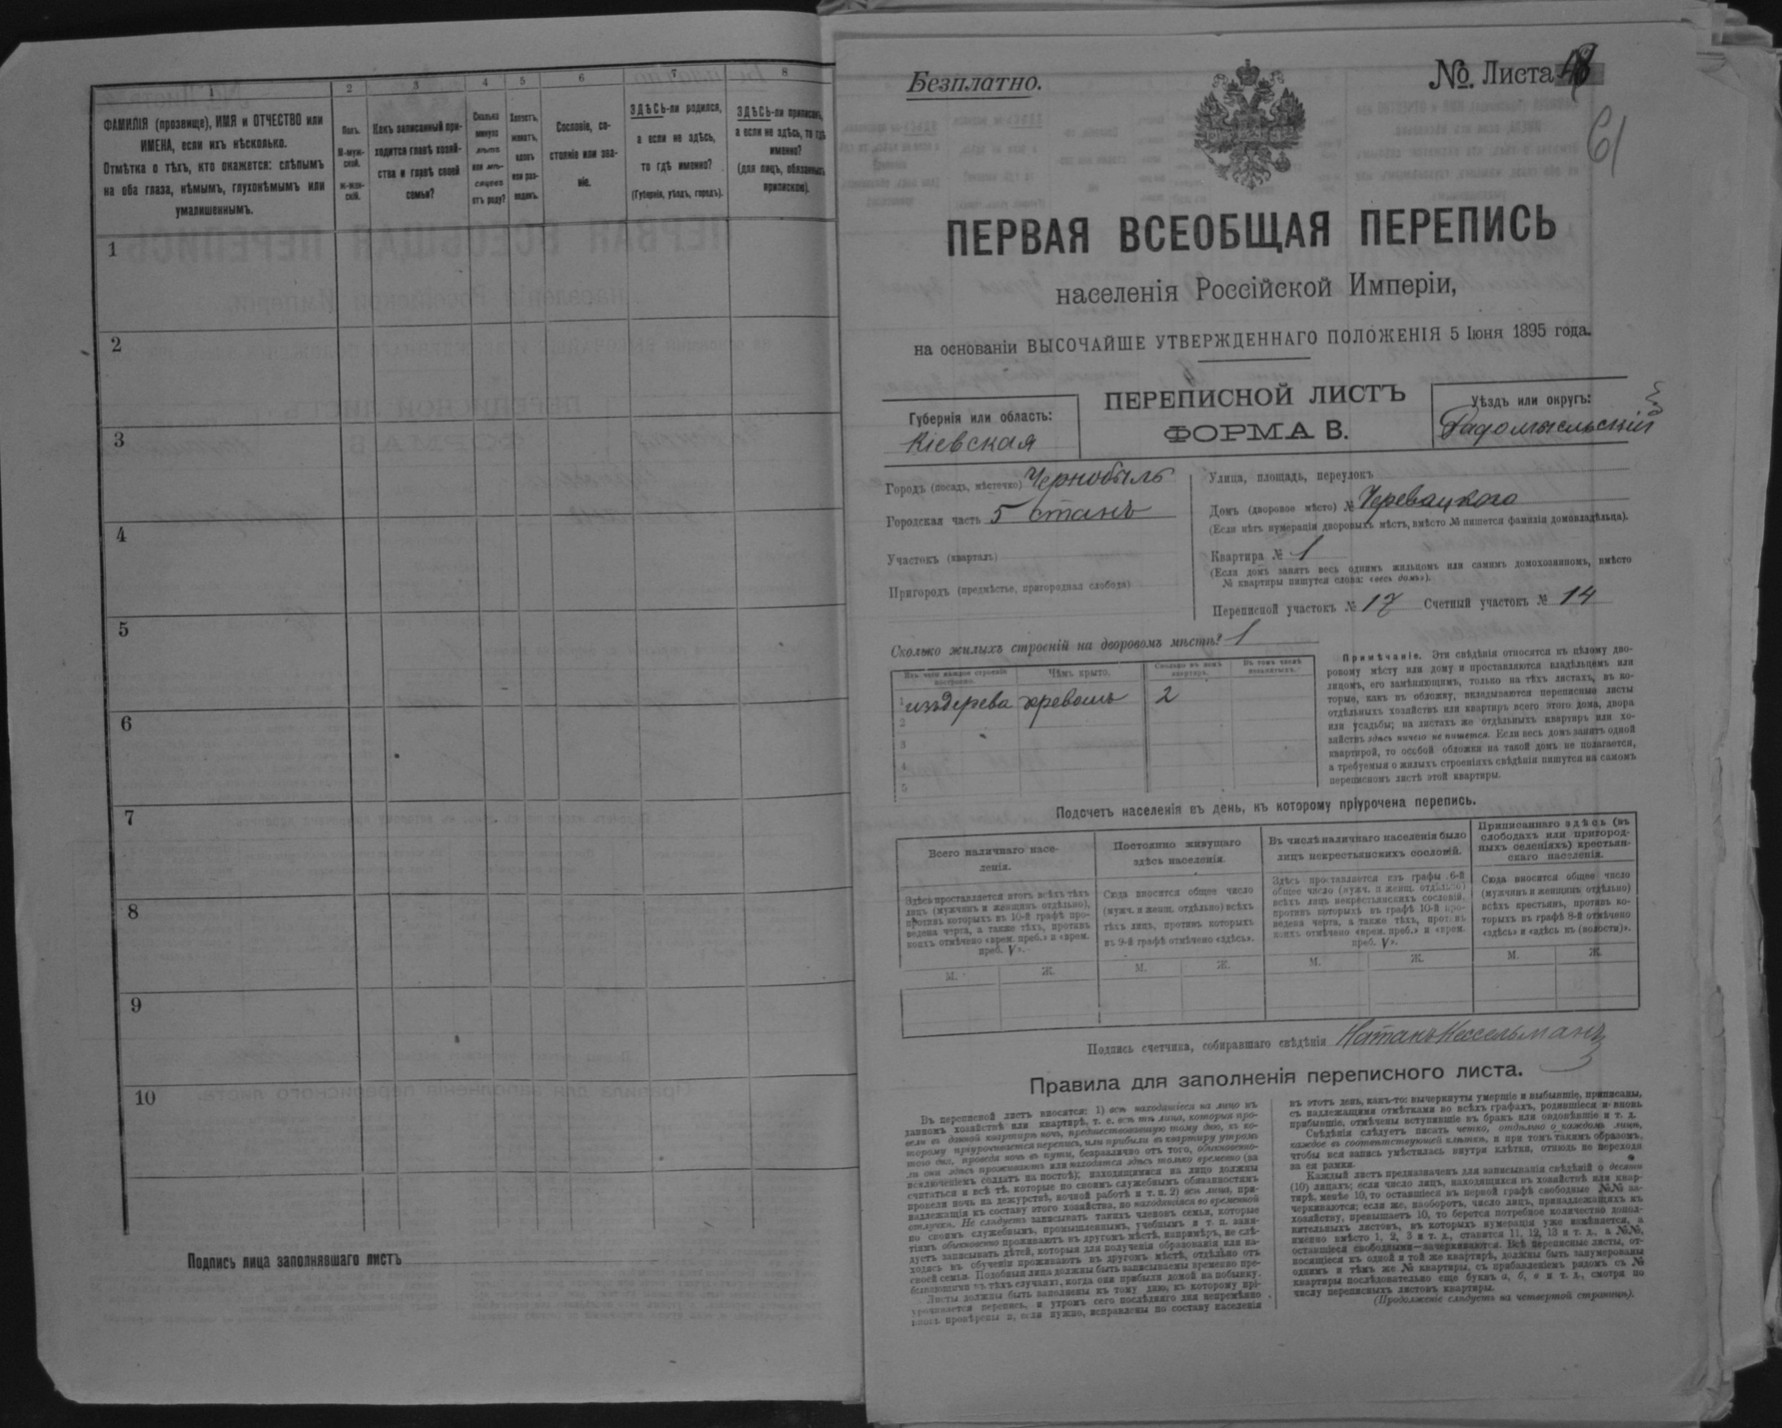 1
ФАМИЛІЯ (прозвище), ИМЯ и ОТЧЕСТВО или
ИМЕНА, если ихъ нѣсколько.
Отмѣтка о тѣхъ, кто окажется: слѣпымъ
на оба глаза, нѣмымъ, глухонѣмымъ или
умалишеннымъ.
2
Полъ.
М-муж-
ской.
Ж-жен-
скій.
3
Какъ записанный при-
ходится главѣ хозяй-
ства и главѣ своей
семьи?
4
Сколько
минуло
лѣтъ
или мѣ-
сяцевъ
отъ роду?
5
Холостъ,
женатъ,
вдовъ
или раз-
веденъ.
6
Сословіе, со-
стояніе или зва-
ніе.
7
ЗДѢСЬ-ли родился,
а если не здѣсь,
то гдѣ именно?
(Губернія, уѣздъ, городъ).
8
ЗДѢСЬ-ли приписанъ,
а если не здѣсь, то гдѣ
именно?
(для лицъ, обязанныхъ
припискою).
1
2
3
4
5
6
7
8
9
10
Подпись лица заполнявшаго листъ
Безплатно.
№ Листа
61
ПЕРВАЯ ВСЕОБЩАЯ ПЕРЕПИСЬ
населенія Россійской Имперіи,
на основаніи ВЫСОЧАЙШЕ УТВЕРЖДЕННАГО ПОЛОЖЕНІЯ 5 Іюня 1895 года.
Губернія или область:
Кіевская
ПЕРЕПИСНОЙ ЛИСТЪ
ФОРМА В.
Уѣздъ или округъ:
Радомысльскій
Городъ (посадъ, мѣстечко) Чернобыль
Городская часть 5 станъ
Участокъ (кварталъ)
Пригородъ (предмѣстье, пригородная слобода)
Улица, площадь, переулокъ
Домъ (дворовое мѣсто) № Черевацкого
(Если нѣтъ нумераціи дворовыхъ мѣстъ, вмѣсто № пишется фамилія домовладѣльца).
Квартира № 1
(Если домъ занятъ весь однимъ жильцомъ или самимъ домохозяиномъ, вмѣсто
№ квартиры пишутся слова: «весь домъ»).
Переписной участокъ № 17 Счетный участокъ № 14
Сколько жилыхъ строеній на дворовомъ мѣстѣ? 1
Изъ чего каждое строеніе
построено.
Чѣмъ крыто.
Сколько въ немъ
квартиръ.
Въ томъ числѣ
незанятыхъ.
1 изъ дерева древомъ 2
2
3
4
5
Примѣчаніе. Эти свѣдѣнія относятся къ цѣлому дво-
ровому мѣсту или дому и проставляются владѣльцемъ или
лицомъ, его замѣняющимъ, только на тѣхъ листахъ, въ ко-
торые, какъ въ обложку, вкладываются переписные листы
отдѣльныхъ хозяйствъ или квартиръ всего этого дома, двора
или усадьбы; на листахъ же отдѣльныхъ квартиръ или хо-
зяйствъ здѣсь ничего не пишется. Если весь домъ занятъ одной
квартирой, то особой обложки на такой домъ не полагается,
а требуемыя о жилыхъ строеніяхъ свѣдѣнія пишутся на самомъ
переписномъ листѣ этой квартиры.
Подсчетъ населенія въ день, къ которому пріурочена перепись.
Всего наличнаго насе-
ленія.
Здѣсь проставляется итогъ всѣхъ тѣхъ
лицъ (мужчинъ и женщинъ отдѣльно),
противъ которыхъ въ 10-й графѣ про-
ведена черта, а также тѣхъ, противъ
коихъ отмѣчено «врем. преб.» и «врем.
преб. V».
М. Ж.
Постоянно живущаго
здѣсь населенія.
Сюда вносится общее число
(мужч. и женщ. отдѣльно) всѣхъ
тѣхъ лицъ, противъ которыхъ
въ 9-й графѣ отмѣчено «здѣсь».
М. Ж.
Въ числѣ наличнаго населенія было
лицъ некрестьянскихъ сословій.
Здѣсь проставляется изъ графы 6-й
общее число (мужч. и женщ. отдѣльно)
всѣхъ лицъ некрестьянскихъ сословій,
противъ которыхъ въ графѣ 10-й про-
ведена черта, а также тѣхъ, противъ
коихъ отмѣчено «врем. преб.» и «врем.
преб. V».
М. Ж.
Приписаннаго здѣсь (въ
слободахъ или пригород-
ныхъ селеніяхъ) крестьян-
скаго населенія.
Сюда вносится общее число
(мужчинъ и женщинъ отдѣльно)
всѣхъ крестьянъ, противъ ко-
торыхъ въ графѣ 8-й отмѣчено
«здѣсь» и «здѣсь къ (волости)».
М. Ж.
Подпись счетчика, собиравшаго свѣдѣнія Натанъ Кессельманъ
Правила для заполненія переписного листа.
Въ переписной листъ вносятся: 1) всѣ находящіеся на лицо въ
данномъ хозяйствѣ или квартирѣ, т. е. всѣ тѣ лица, которыя про-
вели въ данной квартирѣ ночь, предшествовавшую тому дню, къ ко-
торому пріурочивается перепись, или прибыли въ квартиру утромъ
того дня, проведя ночь въ пути, безразлично отъ того, обыкновенно-
ли они здѣсь проживаютъ или находятся здѣсь только временно (за
исключеніемъ солдатъ на постоѣ); находящимися на лицо должны
считаться и всѣ тѣ, которые по своимъ служебнымъ обязанностямъ
провели ночь на дежурствѣ, ночной работѣ и т. п. 2) всѣ лица, при-
надлежащія къ составу этого хозяйства, но находящіяся во временной
отлучкѣ. Не слѣдуетъ записывать такихъ членовъ семьи, которые
по своимъ служебнымъ, промышленнымъ, учебнымъ и т. п. заня-
тіямъ обыкновенно проживаютъ въ другомъ мѣстѣ, напримѣръ, не слѣ-
дуетъ записывать дѣтей, которыя для полученія образованія или на-
ходясь въ обученіи проживаютъ въ другомъ мѣстѣ, отдѣльно отъ
своей семьи. Подобныя лица должны быть записываемы временно пре-
бывающими въ тѣхъ случаяхъ, когда они прибыли домой на побывку.
Листы должны быть заполнены къ тому дню, къ которому прі-
урочивается перепись, и утромъ сего послѣдняго дня непремѣнно
вновь провѣрены и, если нужно, исправлены по составу населенія
въ этотъ день, какъ-то: вычеркнуты умершіе и выбывшіе, приписаны,
съ надлежащими отмѣтками во всѣхъ графахъ, родившіеся и вновь
прибывшіе, отмѣчены вступившіе въ бракъ или овдовѣвшіе и т. д.
Свѣдѣнія слѣдуетъ писать четко, отдѣльно о каждомъ лицѣ,
каждое въ соотвѣтствующей клѣткѣ, и при томъ такимъ образомъ,
чтобы вся запись умѣстилась внутри клѣтки, отнюдь не переходя
за ея рамки.
Каждый листъ предназначенъ для записыванія свѣдѣній о десяти
(10) лицахъ; если число лицъ, находящихся въ хозяйствѣ или квар-
тирѣ, менѣе 10, то оставшіеся въ первой графѣ свободные №№ за-
черкиваются; если же, наоборотъ, число лицъ, принадлежащихъ къ
хозяйству, превышаетъ 10, то берется потребное количество допол-
нительныхъ листовъ, въ которыхъ нумерація уже измѣняется, а
именно вмѣсто 1, 2, 3 и т. д., ставится 11, 12, 13 и т. д., а №№,
оставшіеся свободными—зачеркиваются. Всѣ переписные листы, от-
носящіеся къ одной и той же квартирѣ, должны быть занумерованы
однимъ и тѣмъ же № квартиры, съ прибавленіемъ рядомъ съ №
квартиры послѣдовательно еще буквъ а, б, в и т. д., смотря по
числу переписныхъ листовъ квартиры.
(Продолженіе слѣдуетъ на четвертой страницѣ).